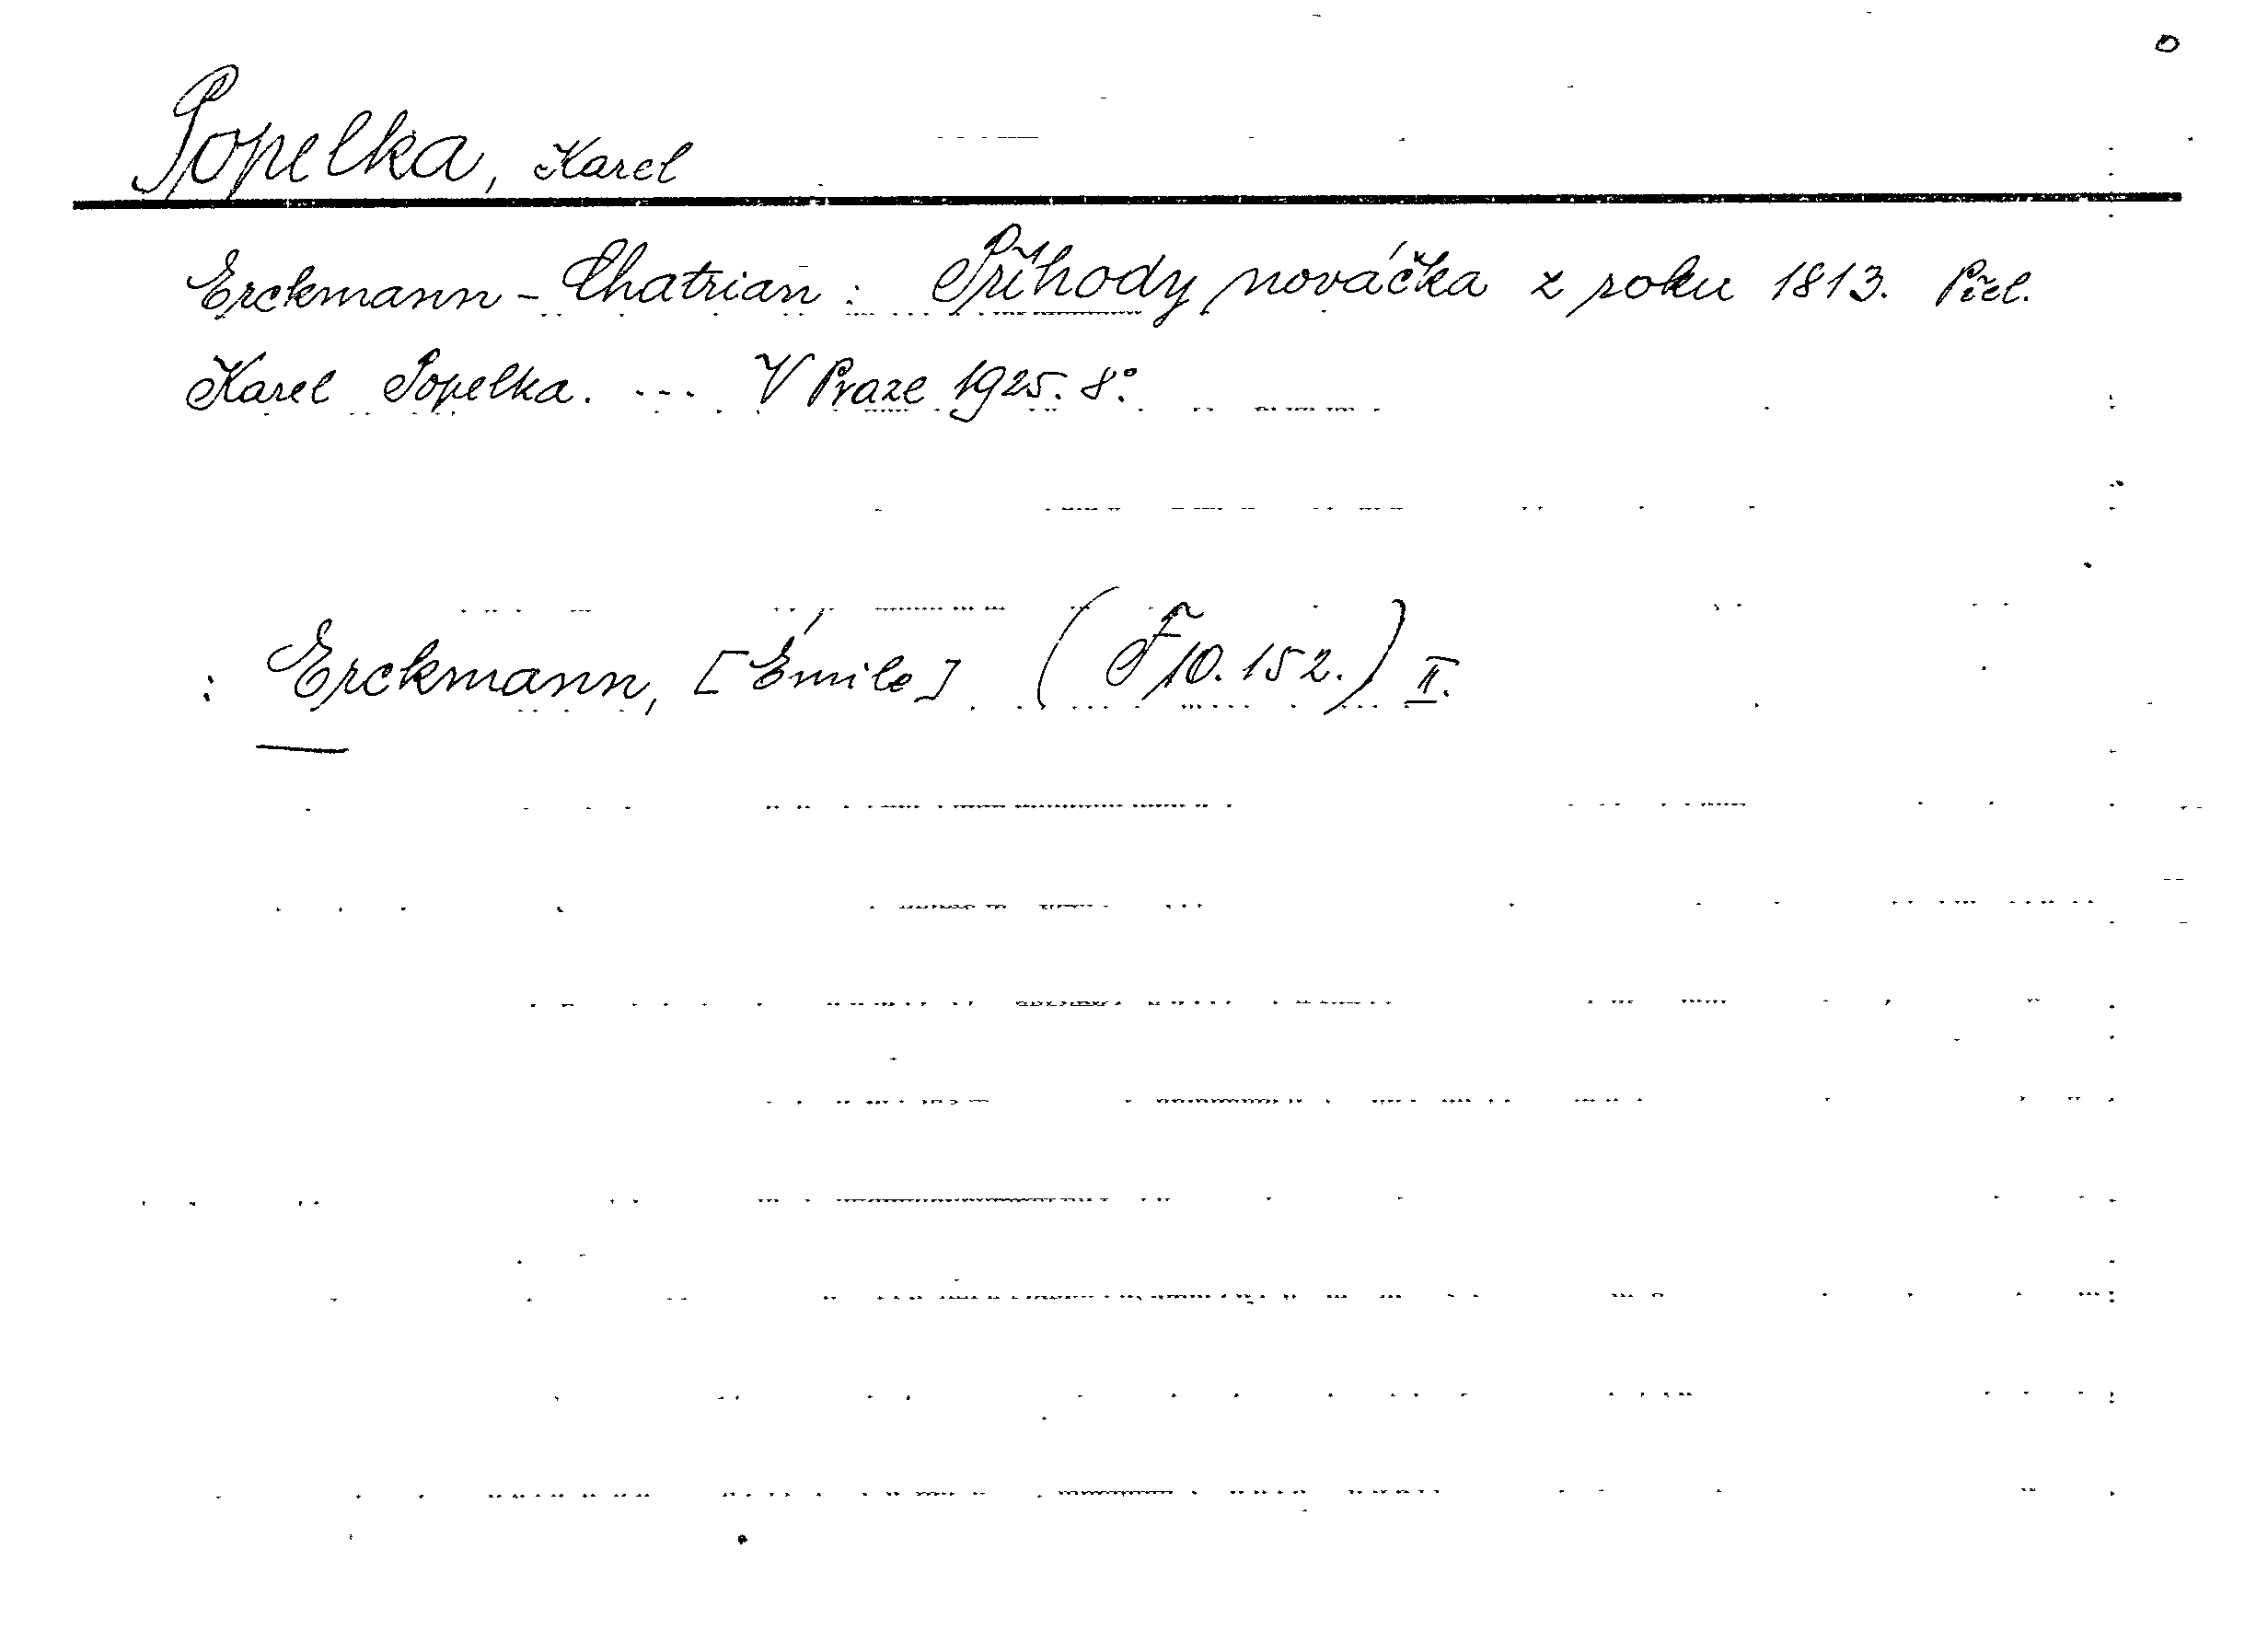 Popelka, Karel
Erckmann-Chatrian: Příhody nováčka z roku 1813. Přel.
Karel Popelka. ... V Praze 1925. 8°.
: Erckmann, [Émile] (F 10.152.) II.